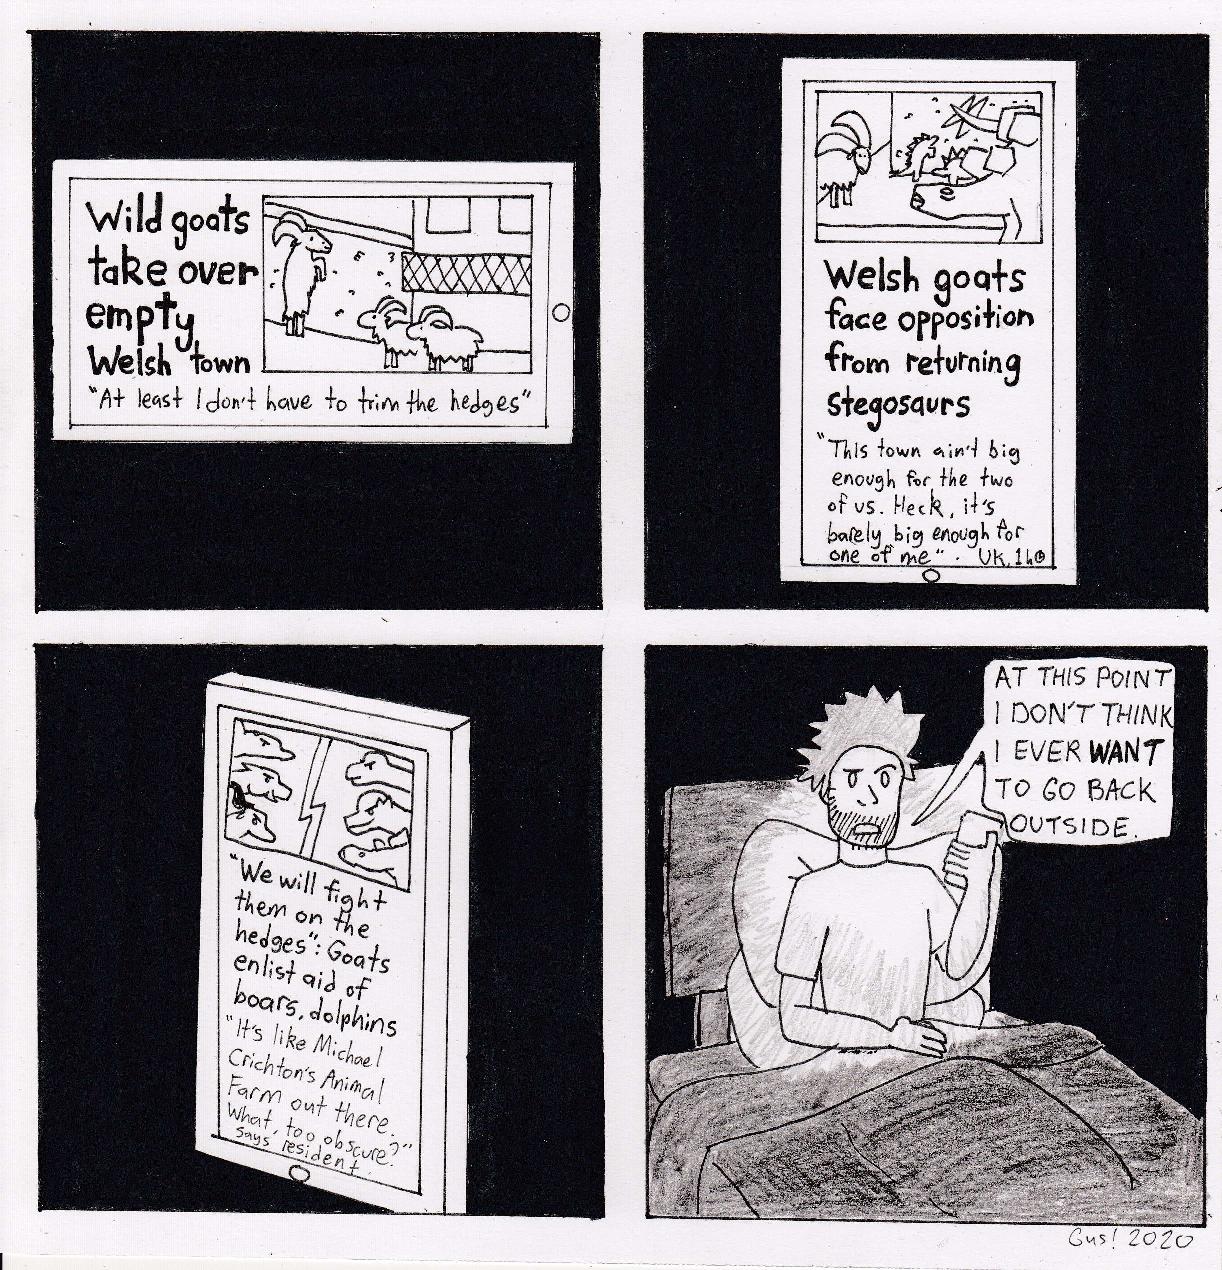 Wild goats
take over
empty
Welsh town
"At least I don't have to trim the hedges"
Welsh goats
face opposition
from returning
stegosaurs
"This town ain't big
enough for the two
of us. Heck, it's
barely big enough for
one of me". UK, 1h
"We will fight
them on the
hedges": Goats
enlist aid of
boars, dolphins
"It's like Michael
Crichton's Animal
Farm out there.
What, too obscure?"
says resident.
AT THIS POINT
I DON'T THINK
I EVER WANT
TO GO BACK
OUTSIDE.
Gus! 2020